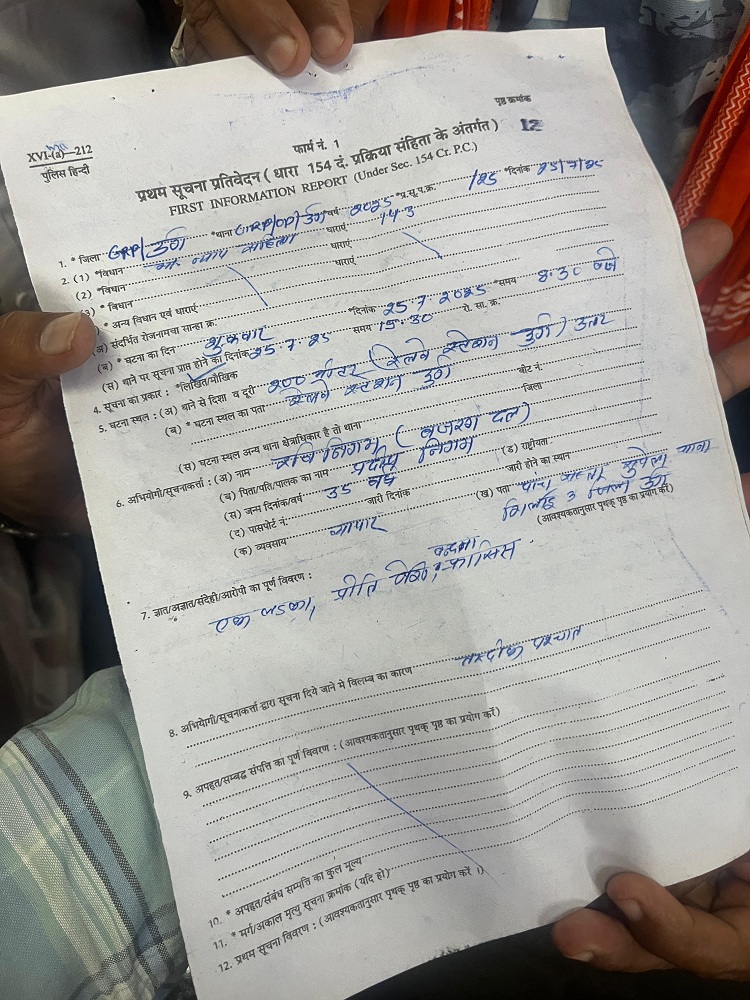 पृष्ठ क्रमांक
12
XVI-(a)—212
पुलिस हिन्दी
फार्म नं. 1
प्रथम सूचना प्रतिवेदन ( धारा 154 दं. प्रक्रिया संहिता के अंतर्गत )
FIRST INFORMATION REPORT (Under Sec. 154 Cr. P.C.)
1. * जिला GRP/दुर्ग *थाना GRP/OP/दुर्ग वर्ष 2025 *प्र.सू.प.क्र. /25 *दिनांक 25/7/25
2. (1) *विधान भा. न्याय संहिता धाराएं 143
(2) *विधान धाराएं
(3) * विधान धाराएं
* अन्य विधान एवं धाराएं
(अ) संदर्भित रोजनामचा सान्हा क्र. *दिनांक 25.7.2025 *समय 8.30 बजे
(ब) * घटना का दिन शुक्रवार
(स) थाने पर सूचना प्राप्त होने का दिनांक 25.7.25 समय 15.30 रो. सा. क्र.
4. सूचना का प्रकार : *लिखित/मौखिक
5. घटना स्थल : (अ) थाने से दिशा व दूरी 200 मीटर (रेलवे स्टेशन दुर्ग) उत्तर
(ब) * घटना स्थल का पता रेलवे स्टेशन दुर्ग बीट नं.
(स) घटना स्थल अन्य थाना क्षेत्राधिकार है तो थाना जिला
6. अभियोगी/सूचनाकर्त्ता : (अ) नाम रवि निगम (बजरंग दल)
(ब) पिता/पति/पालक का नाम प्रदीप निगम
(स) जन्म दिनांक/वर्ष 35 वर्ष (ड) राष्ट्रीयता
(द) पासपोर्ट नं. जारी दिनांक जारी होने का स्थान
(क) व्यवसाय व्यापार (ख) पता सुपेला थाना
भिलाई 3 जिला दुर्ग
(आवश्यकतानुसार पृथक् पृष्ठ का प्रयोग करें)
7. ज्ञात/अज्ञात/संदेही/आरोपी का पूर्ण विवरण :
एक लडका, प्रीति मेरी, वन्दना फ्रांसिस.
8. अभियोगी/सूचनाकर्त्ता द्वारा सूचना दिये जाने में विलम्ब का कारण तस्दीक पश्चात
9. अपहृत/सम्बद्ध संपत्ति का पूर्ण विवरण : (आवश्यकतानुसार पृथक् पृष्ठ का प्रयोग करें)
10. * अपहृत/संबंध सम्पत्ति का कुल मूल्य
11. * मर्ग/अकाल मृत्यु सूचना क्रमांक (यदि हो)
12. प्रथम सूचना विवरण : (आवश्यकतानुसार पृथक् पृष्ठ का प्रयोग करें ।)